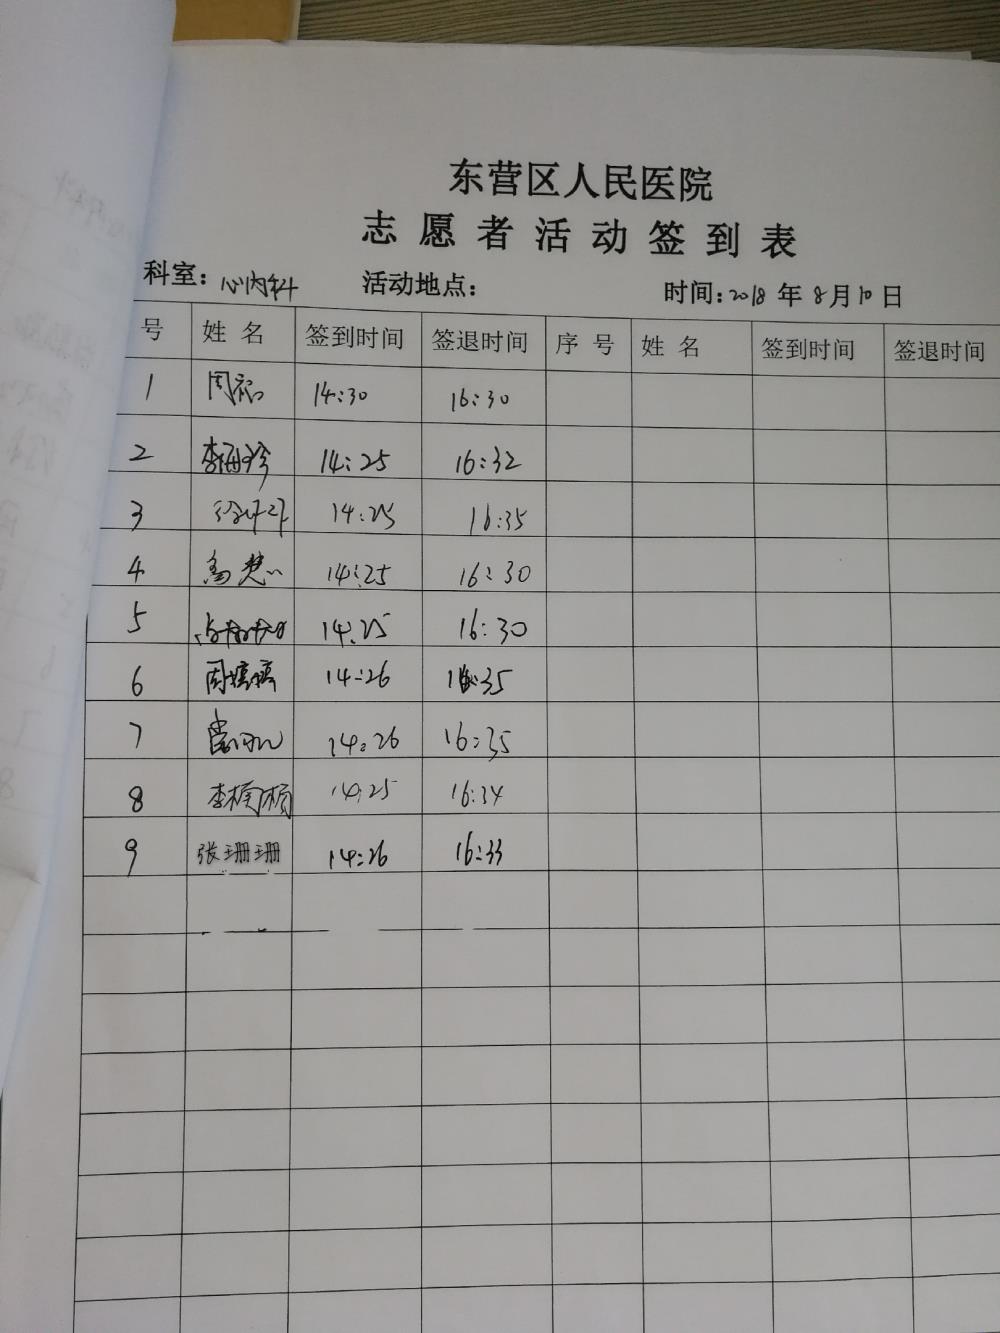 东营区人民医院
志愿者活动签到表
科室：心内科 活动地点： 时间：2018年8月10日
号 姓名 签到时间 签退时间 序号 姓名 签到时间 签退时间
1 14:30 16:30
2 李海珍 14:25 16:32
3 14:25 16:35
4 高慧 14:25 16:30
5 14:25 16:30
6 周嫱嫱 14:26 16:35
7 14:26 16:35
8 李楠楠 14:25 16:34
9 张珊珊 14:26 16:33